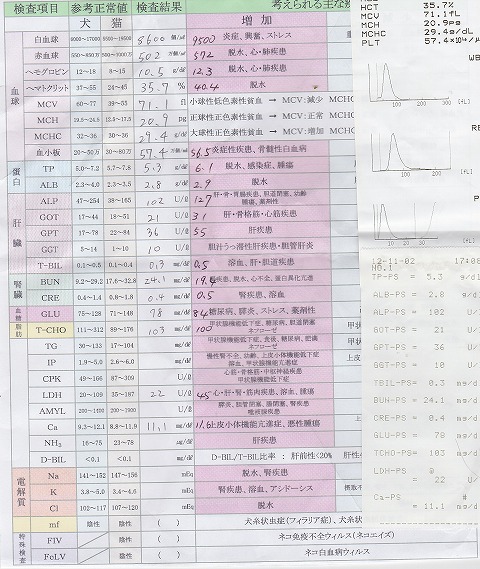 検査項目 参考正常値 検査結果 考えられる主な疾
犬 猫 増加
血球
白血球 6000~17000 5500~19500 8600 個/㎕ 9500 炎症、興奮、ストレス
赤血球 550~850万 500~1000万 502 万個/㎕ 572 脱水、心・肺疾患
ヘモグロビン 12~18 8~15 10.5 g/dℓ 12.3 脱水、心・肺疾患
ヘマトクリット 35~55 24~45 35.7 % 40.4 脱水
MCV 60~77 39~55 71.1 fl 小球性低色素性貧血 → MCV:減少 MCHC
MCH 19.5~24.5 12.5~17.5 20.9 pg 正球性正色素性貧血 → MCV:正常 MCHC
MCHC 32~36 30~36 29.4 g/dℓ 大球性正色素性貧血 → MCV:増加 MCHC
血小板 20~50万 30~80万 57.4 万個/㎕ 56.5 炎症性疾患、骨髄性白血病
蛋白
TP 5.0~7.2 5.7~7.8 5.3 g/dℓ 6.1 脱水、感染症、腫瘍
ALB 2.3~4.0 2.3~3.5 2.8 g/dℓ 2.9 脱水
肝臓
ALP 47~254 38~165 102 U/ℓ 127 肝・骨・胃腸疾患、胆道閉塞、幼齢 腫瘍、薬剤性
GOT 17~44 18~51 21 U/ℓ 31 肝・骨格筋・心筋疾患
GPT 17~78 22~84 36 U/ℓ 55 肝疾患
GGT 5~14 1~10 10 U/ℓ 胆汁うっ滞性肝疾患・胆管肝炎
T-BIL 0.1~0.5 0.1~0.4 0.3 mg/dℓ 0.5 溶血、肝・胆道疾患
腎臓
BUN 9.2~29.2 17.6~32.8 24.1 mg/dℓ 19.4 腎疾患、脱水、心不全、蛋白異化亢進
CRE 0.4~1.4 0.8~1.8 0.4 mg/dℓ 0.5 腎疾患、溶血
血糖
GLU 75~128 71~148 78 mg/dℓ 84 糖尿病、膵炎、ストレス、薬剤性
脂肪
T-CHO 111~312 89~176 103 mg/dℓ 100 甲状腺機能低下症、糖尿病、胆道閉塞 ネフローゼ 甲状
TG 30~133 17~104 mg/dℓ 甲状腺機能低下症、食後、糖尿病、肥満 ネフローゼ 甲状腺
IP 1.9~5.0 2.6~6.0 mg/dℓ 慢性腎不全、幼齢、上皮小体機能低下症 溶血、甲状腺機能亢進症 上皮
CPK 49~166 87~309 U/ℓ 心筋・骨格筋・中枢神経疾患 甲状腺機能低下症
LDH 20~109 35~187 22 U/ℓ 45 心・肝・腎・筋肉疾患、溶血、腫瘍
AMYL 200~1400 200~1900 U/ℓ 膵炎、胆管閉塞、腸閉塞、腎疾患 唾液腺疾患
Ca 9.3~12.1 8.8~11.9 11.1 mg/dℓ 11.6 上皮小体機能亢進症、悪性腫瘍
NH₃ 16~75 23~78 ㎍/dℓ 肝疾患
D-BIL <0.1 <0.1 mg/dℓ D-BIL/T-BIL比率 : 肝前性<20% 肝性
電解質
Na 141~152 147~156 mEq 脱水、腎疾患
K 3.8~5.0 3.4~4.6 mEq 腎疾患、溶血、アシドーシス
Cl 102~117 107~120 mEq 脱水
mf 陰性 陰性 ( ) 犬糸状虫症(フィラリア症)、犬糸状
特殊検査
FIV 陰性 ( ) ネコ免疫不全ウィルス(ネコエイズ)
FeLV 陰性 ( ) ネコ白血病ウィルス
HCT 35.7%
MCV 71.1fL
MCH 20.9pg
MCHC 29.4g/dL
PLT 57.4
WB
100 200 [fL]
RE
100 200 [fL]
P
10 20 30 [fL]
12-11-02 17:08
NO.1
TP-PS = 5.3 g/d
ALB-PS= 2.8 g/d
ALP-PS= 102 U/
GOT-PS= 21 U/
GPT-PS= 36 U/
GGT-PS= 10 U/
TBIL-PS= 0.3 mg/d
BUN-PS= 24.1 mg/d
CRE-PS= 0.4 mg/d
GLU-PS= 78 mg/d
TCHO-PS= 103 mg/d
LDH-PS @
= 22 U/
Ca-PS #
= 11.1 mg/d